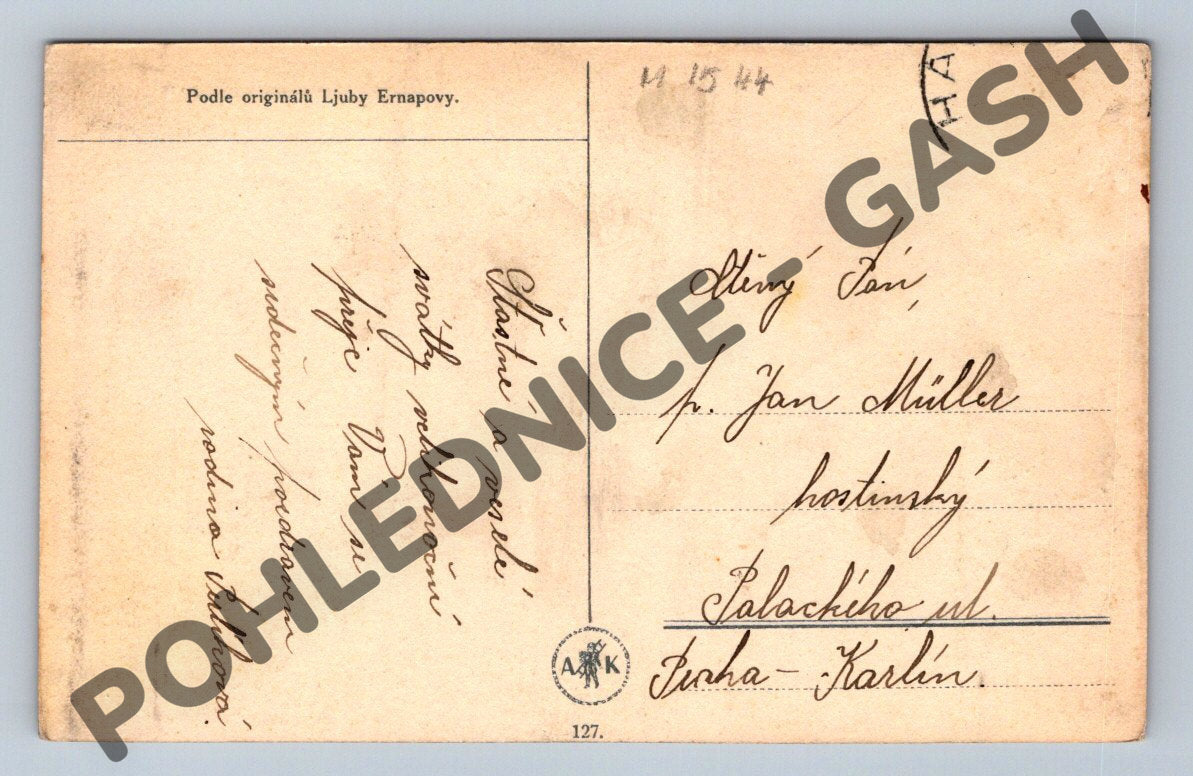 Podle originálů Ljuby Ernapovy.
M 15 44
HA
Ctěný Pán
p. Jan Müller
hostinský
Palackého ul.
Praha - Karlín.
Šťastné a veselé
svátky velikonoční
přeje Vám se
srdečným pozdravem
rodina
A K
127.
POHLEDNICE - GASH